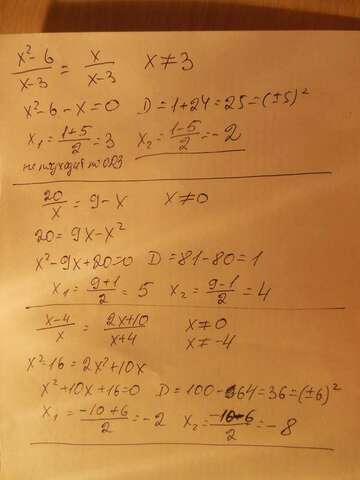 x²-6/x-3 = x/x-3 x≠3
x²-6-x=0 D=1+24=25=(±5)²
x₁=1+5/2=3 x₂=1-5/2=-2
не подходит по ОДЗ
20/x = 9-x x≠0
20=9x-x²
x²-9x+20=0 D=81-80=1
x₁=9+1/2=5 x₂=9-1/2=4
x-4/x = 2x+10/x+4 x≠0
x≠-4
x²-16=2x²+10x
x²+10x+16=0 D=100-64=36=(±6)²
x₁=-10+6/2=-2 x₂=-10-6/2=-8